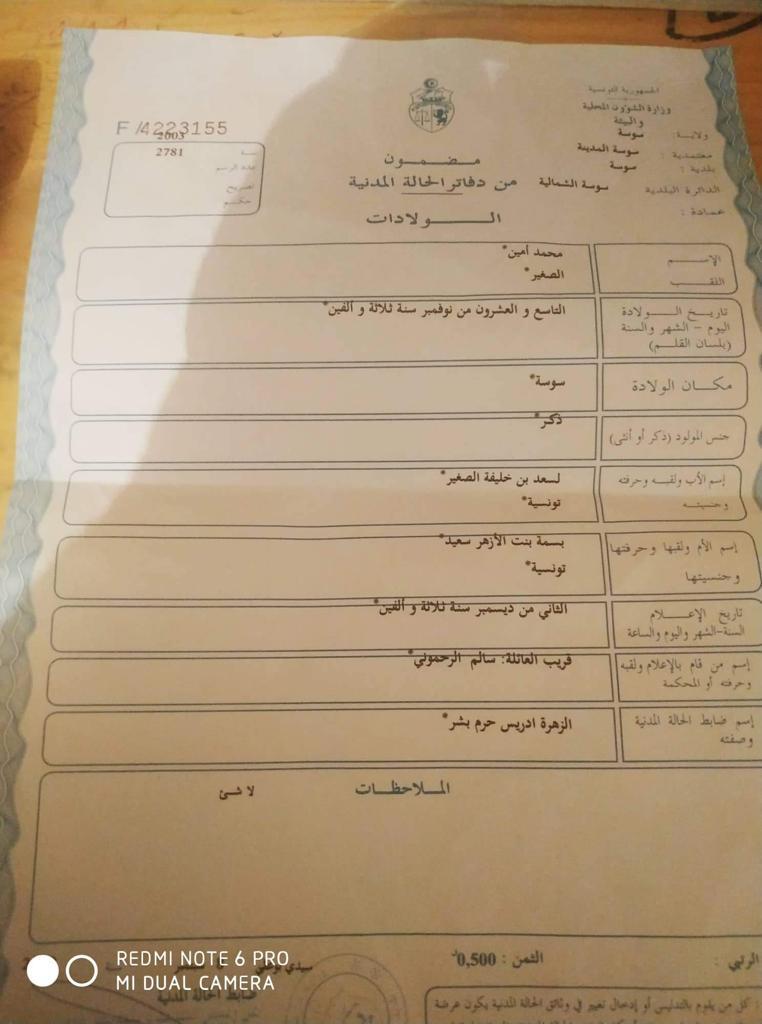 الجمهورية التونسية
وزارة الشؤون المحلية
والبيئة
ولاية: سوسة
معتمدية : سوسة المدينة
بلدية : سوسة
الدائرة البلدية سوسة الشمالية
عمادة :
F/4223155
سنة 2003
عدد الرسم 2781
تصريح
حكم
مضمون
من دفاتر الحالة المدنية
الولادات
الإسم محمد أمين*
اللقب الصغير*
تاريخ الولادة التاسع و العشرون من نوفمبر سنة ثلاثة و ألفين*
اليوم - الشهر والسنة
(بلسان القلم)
مكان الولادة سوسة*
جنس المولود (ذكر أو أنثى) ذكر*
إسم الأب ولقبه وحرفته لسعد بن خليفة الصغير*
وجنسيته تونسية*
إسم الأم ولقبها وحرفتها بسمة بنت الأزهر سعيد*
وجنسيتها تونسية*
تاريخ الإعلام الثاني من ديسمبر سنة ثلاثة و ألفين*
السنة-الشهر واليوم والساعة
إسم من قام بالإعلام ولقبه قريب العائلة: سالم الرحموني*
وحرفته أو المحكمة
إسم ضابط الحالة المدنية الزهرة ادريس حرم بشر*
وصفته
الملاحظات
لا شئ
الثمن : 0,500
ضابط الحالة المدنية
كل من يقوم بالتدليس أو إدخال تغيير في وثائق الحالة المدنية يكون عرضة
REDMI NOTE 6 PRO
MI DUAL CAMERA